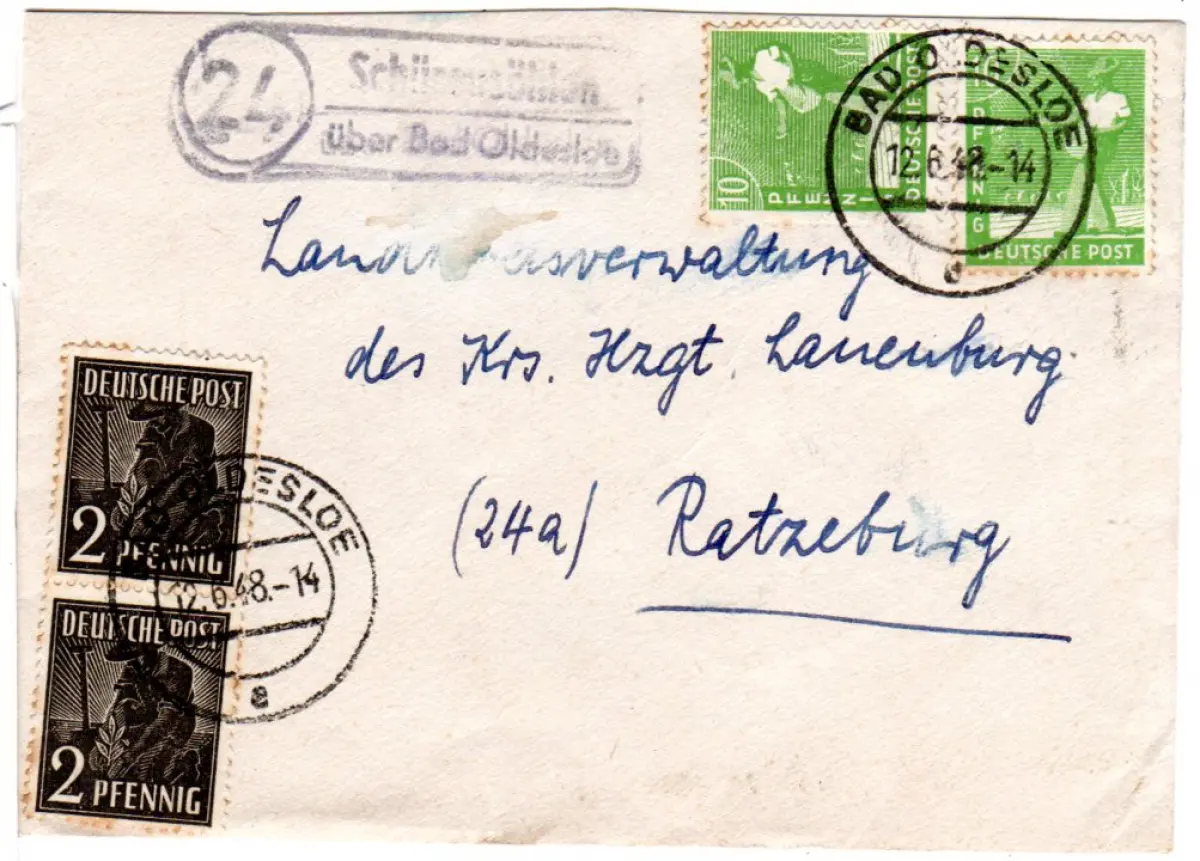 24
über Bad Oldesloe
10
PFENNIG
DEUTSCHE POST
DEUTSCHE POST
BAD OLDESLOE
12.6.48.-14
e
des Krs. Hzgt. Lauenburg.
(24a) Ratzeburg
DEUTSCHE POST
2 PFENNIG
DESLOE
12.6.48.-14
e
DEUTSCHE POST
2 PFENNIG